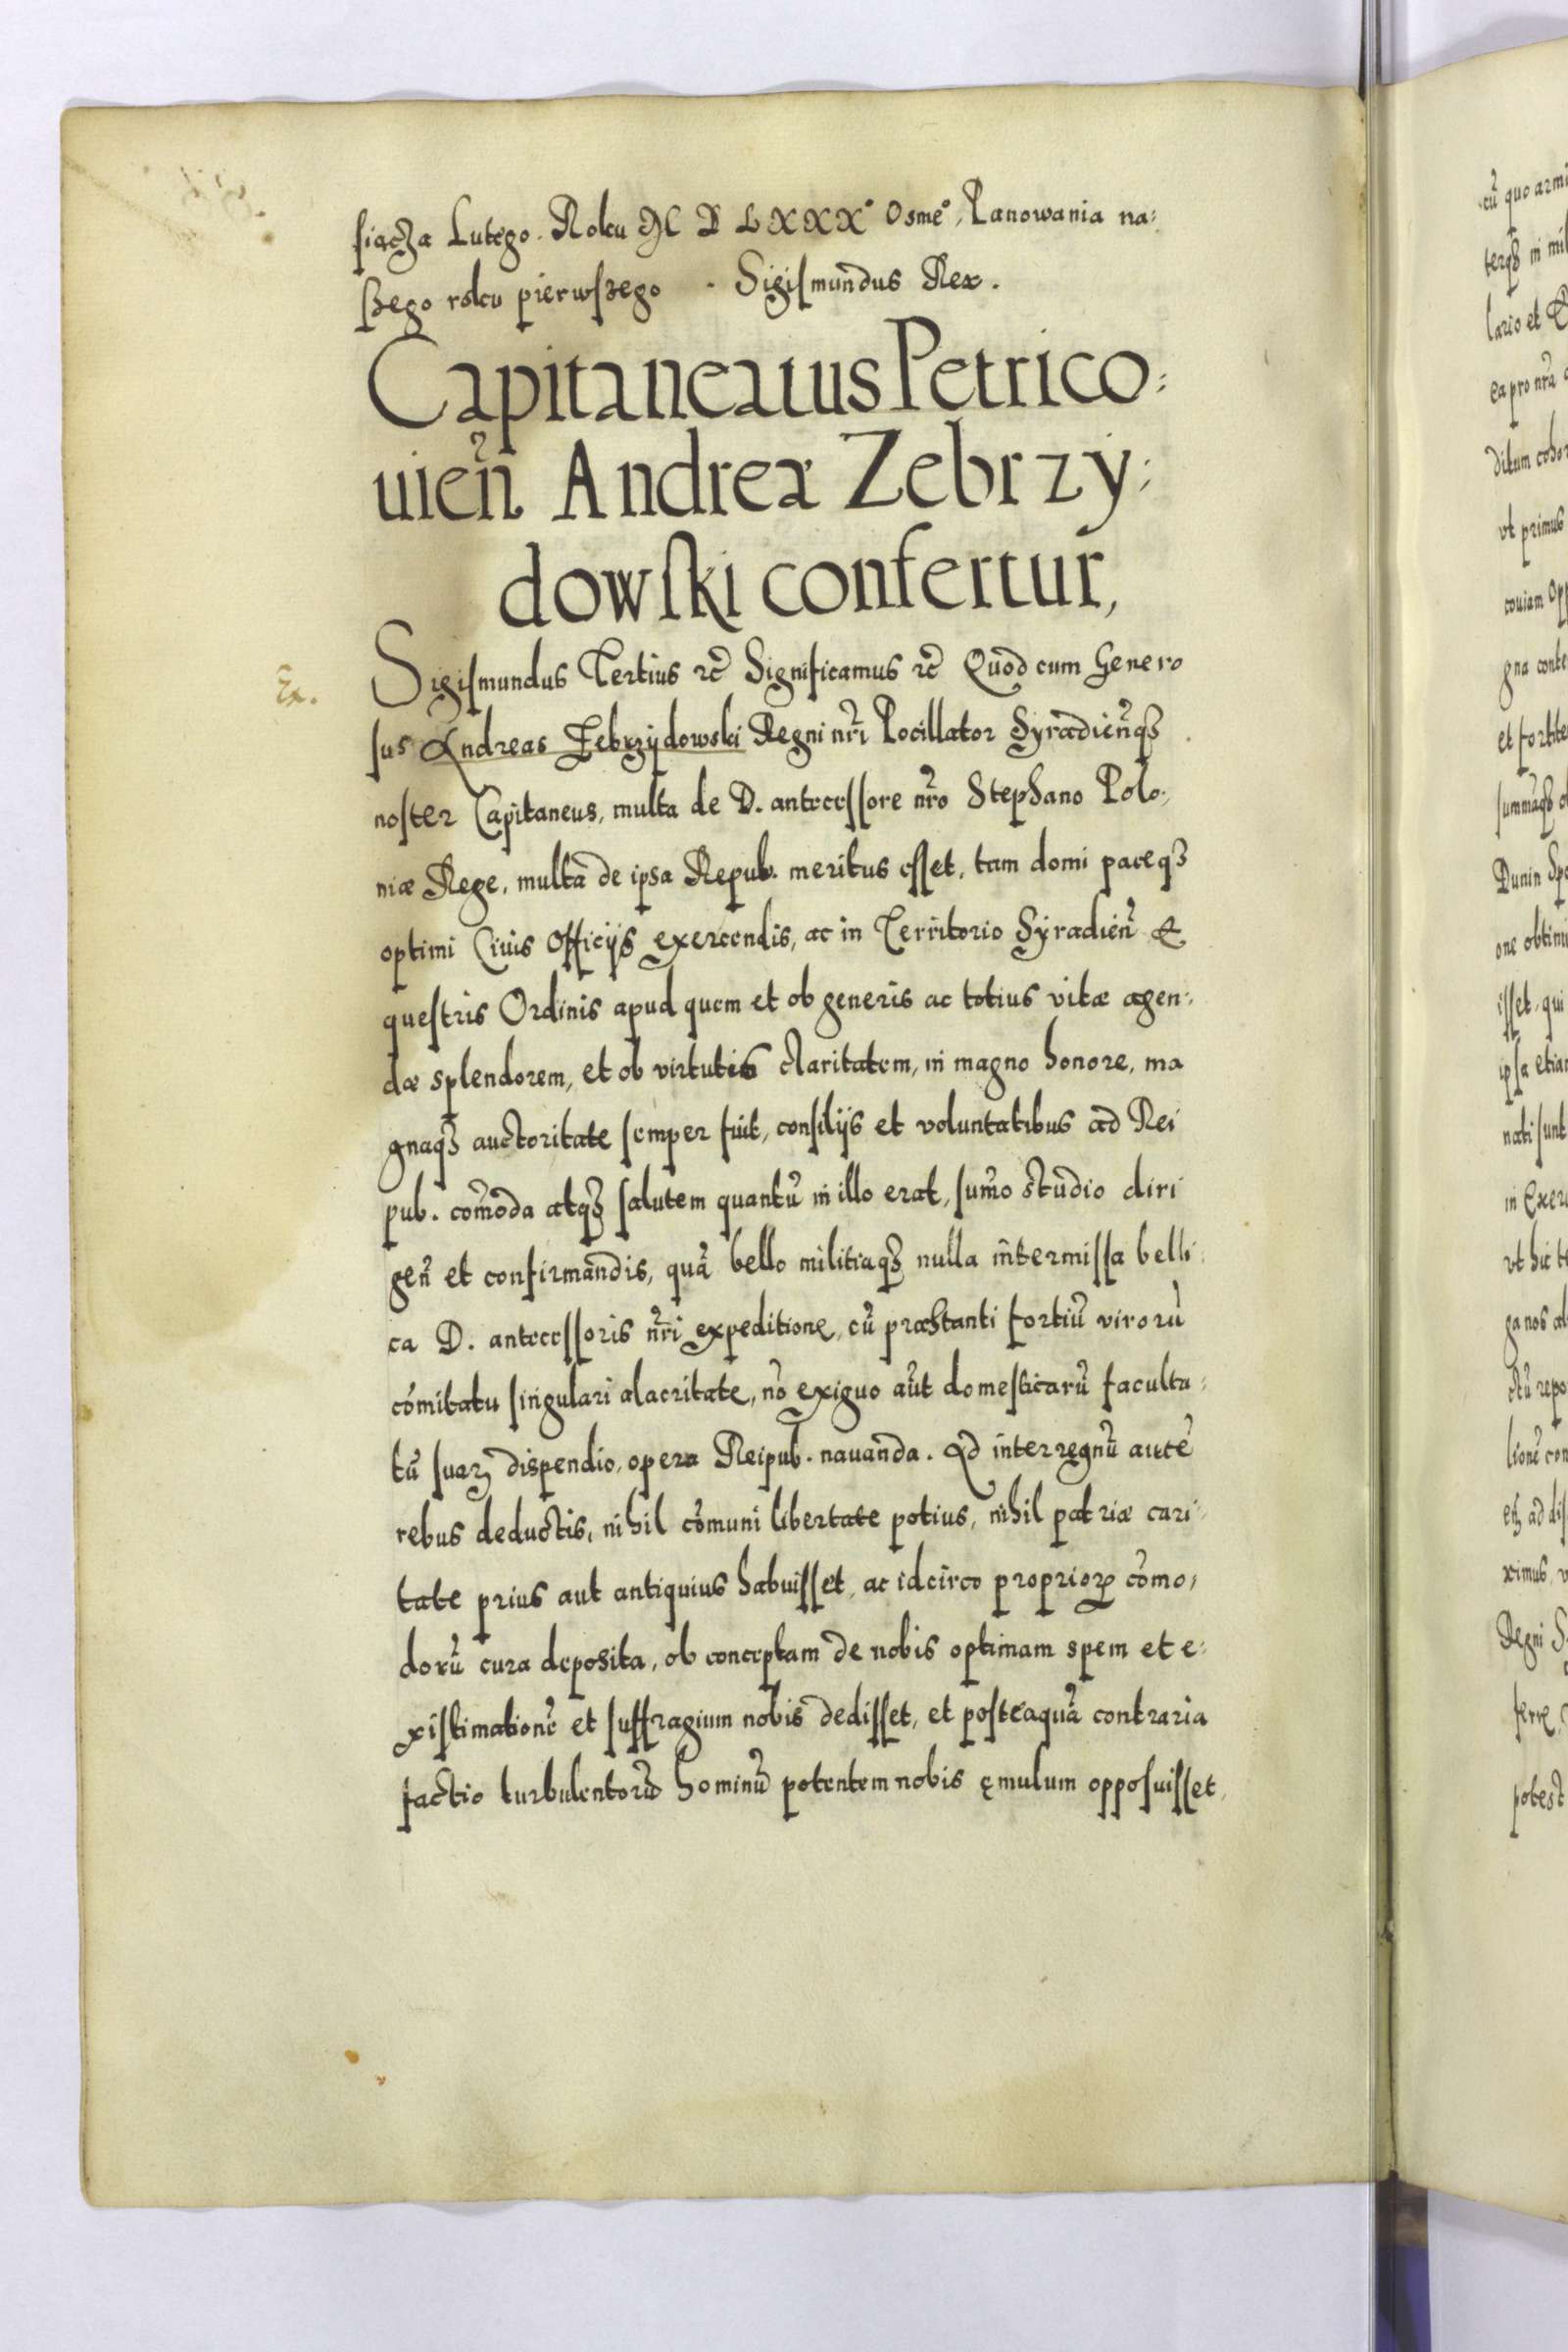 siącza Lutego. Roku M D LXXXº Osmeº, Panowania na:
szego roku pierwszego. Sigismundus Rex.
Capitaneatus Petrico:
uien̄ Andreæ Zebrzy:
dowski confertur,
Ex.
Sigismundus Tertius rc̄ Significamus rc̄ Quod cum Genero
sus Andreas Zebrzydowski Regni nr̄i Pocillator Syradien̄q3
noster Capitaneus, multa de D. antecessore nr̄o Stephano Polo:
niæ Rege, multa de ipsa Repub. meritus esset, tam domi paceq3
optimi Ciuis Officijs exercendis, ac in Territorio Syradien̄ E
questris Ordinis apud quem et ob generis ac totius vitæ agen:
dæ splendorem, et ob virtutis claritatem, in magno honore, ma
gnaq3 auctoritate semper fuit, consilijs et voluntatibus ad Rei
pub. com̄oda atq3 salutem quantū in illo erat, sum̄o studio diri
gen̄ et confirmandis, quā bello militiaq3 nulla intermissa belli:
ca D. antecessoris nr̄i expeditione, cū præstanti fortiū virorū
cōmitatu singulari alacritate, nō exiguo aūt domesticarū faculta:
tū suaꝝ dispendio, opera Reipub. nauanda. Ad interregnū autē
rebus deductis, nihil cōmuni libertate potius, nihil patriæ cari:
tate prius aut antiquius habuisset, ac idcirco proprioꝝ cōmo:
dorū cura deposita, ob conceptam de nobis optimam spem et e:
xistimationē et suffragium nobis dedisset, et posteaquā contraria
factio turbulentorū hominū potentem nobis ęmulum opposuisset,